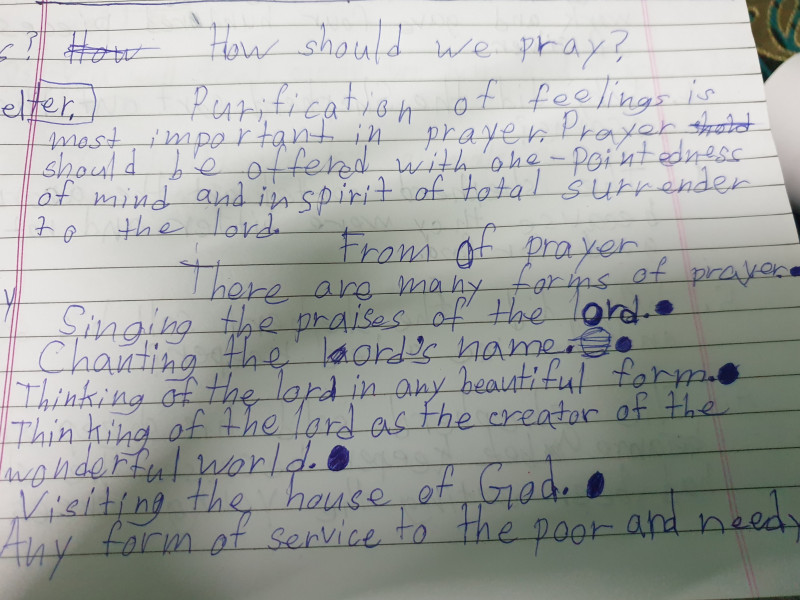 s? How How should we pray?
elter. Purification of feelings is
most important in prayer. Prayer
should be offered with one-pointedness
of mind and in spirit of total surrender
to the lord.
From of prayer
There are many forms of prayer.
y
Singing the praises of the lord.
Chanting the lord's name.
Thinking of the lord in any beautiful form.
Thinking of the lord as the creator of the
wonderful world.
Visiting the house of God.
Any form of service to the poor and needy